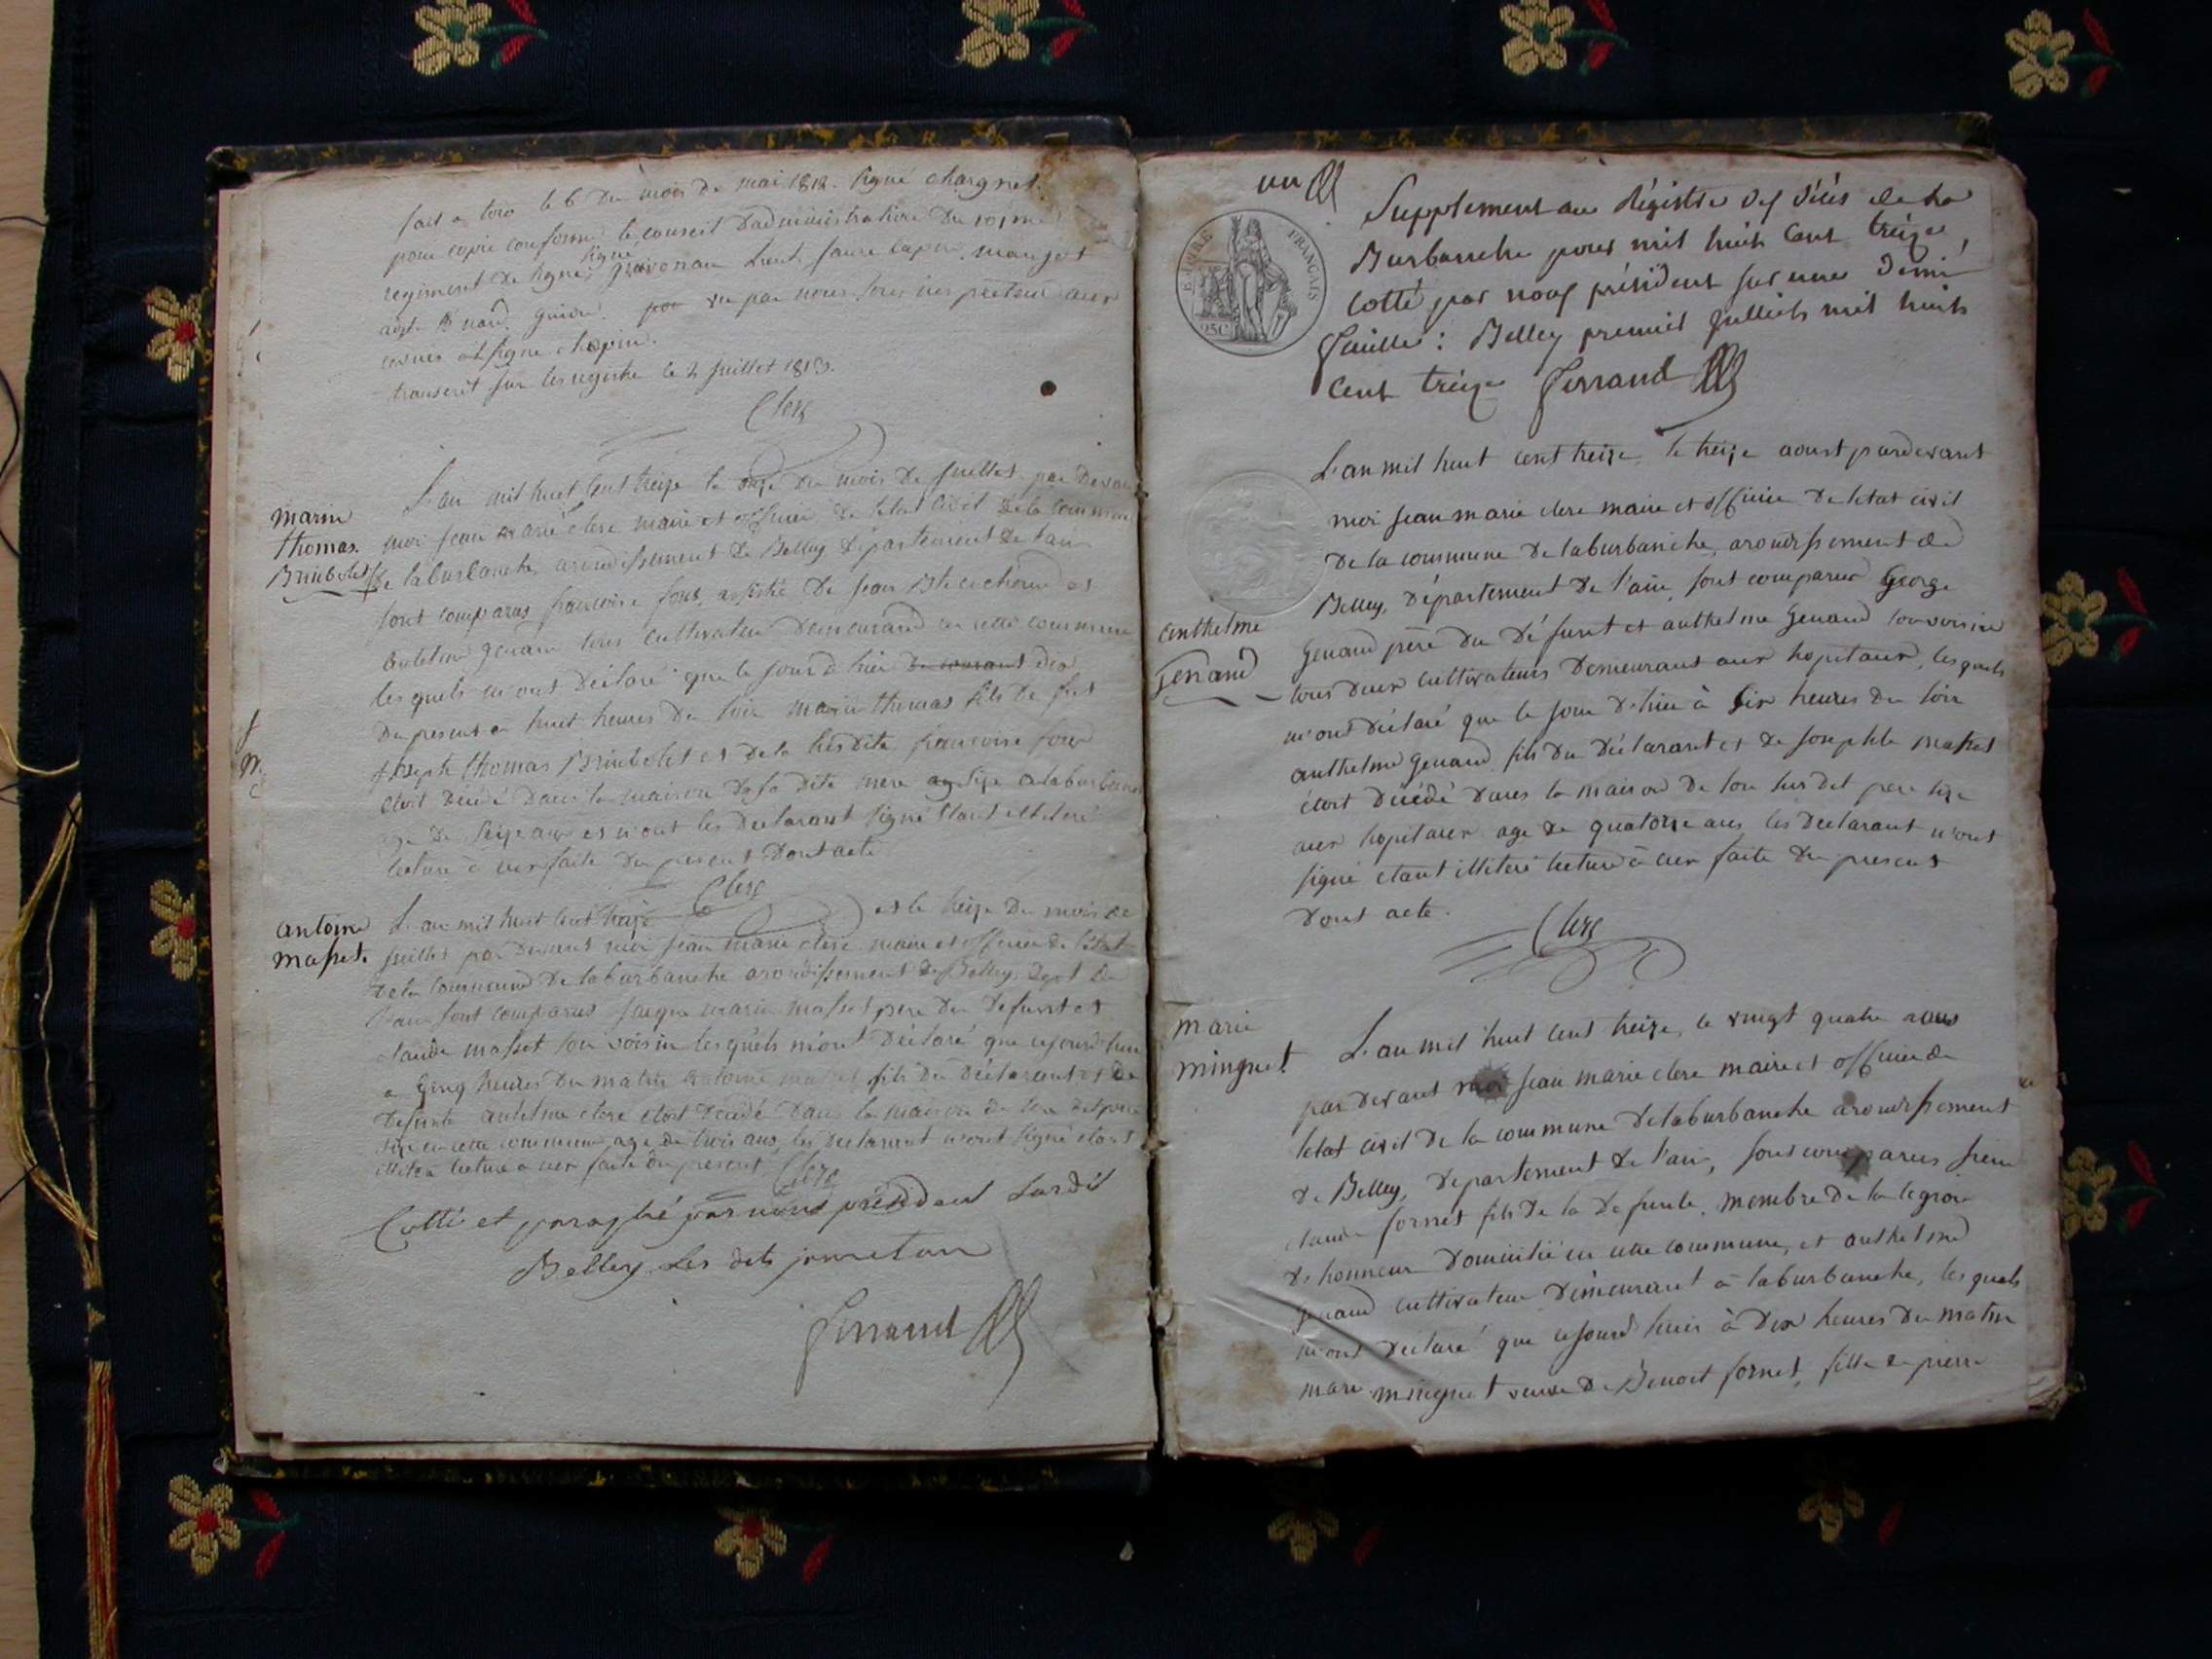 fait a toro le 6 du mois de mai 1812. signé chargnet.
pour copie conforme le conseil d'administration du 101me
regiment de ligne, signé Lieut. faure capne. mangot
vu par nous sous inspecteur aux
revues signé chapuis.
transcrit sur les registre le 2 juillet 1813.
Clerc
marin
thomas
Brunbolet
L'an mil huit cent treize le onze du mois de juillet par devant
moi jean marie clerc maire et officier de l'etat civil de la commune
de laburbanche, arondissement de Belley departement de l'ain
sont comparus francoise foux, assisté de jean Bte cochond et
antelme genaud tous cultivateur demeurand en cette commune
les quels m'ont déclaré que le jour d'hier du courant dix
du present a huit heures du soir marin thomas fils de feu
joseph thomas Brunbolet et de la susdite francoise foux
etoit décédé dans la maison de sa dite mere sise a laburbanche
age de seize ans et n'ont les declarant signé étant illiteré
lecture a eux faite du present dont acte
Clerc
antoine
masset.
L'an mil huit cent treize et le treize du mois de
juillet par devant moi jean marie clerc maire et officier de l'état
de la commune de laburbanche arondissement de Belley, dept de
l'ain sont comparus jacque marie masset pere du defunt et
claude masset son voisin les quels m'ont déclaré que ce jourd'hui
a cinq heures du matin antoine masset fils du déclarant et de
defunte antelme clerc etoit décédé dans la maison de son dit pere
sise en cette commune age de trois ans, les declarant n'ont signé etant
illiteré lecture a eux faite du present Clerc
Cotté et paraphé par nous président susdit
Belley les dits jour et an
Ferrand
un
EMPIRE FRANÇAIS
25C
Supplement au Régistre des décés de La
Burbanche pour mil huit cent treize,
cotté par nous président sur une demi
feuille: Belley premier juillet mil huit
cent treize Ferrand
L'an mil huit cent treize, le treize aoust pardevant
moi jean marie clerc maire et officier de letat civil
de la commune de laburbanche, arondissement de
Belley, département de l'ain, sont comparus George
anthelme
Genand
Genand père du défunt et anthelme Genand son voisin
tous deux cultivateurs demeurant aux hopitaux, les quels
m'ont déclaré que le jour d'hier à six heures du soir
anthelme Genand, fils du déclarant et de josephte masset
étoit décédé dans la maison de son susdit pere sise
aux hopitaux age de quatorze ans les declarant n'ont
signé etant illiteré lecture à eux faite du present
dont acte.
Clerc
marie
minguet
L'an mil huit cent treize, le vingt quatre aous
par devant moi jean marie clerc maire et officier de
letat civil de la commune delaburbanche arondissement
de Belley, departement de l'ain, sont comparus sieur
claude fornet fils de la defunte, membre de la legion
d'honneur domicilié en cette commune, et anthelme
genand cultivateur demeurant à laburbanche, les quels
m'ont déclaré que cejourd'huis à dix heures du matin
marie minguet veuve de Benoit fornet, fille de pierre